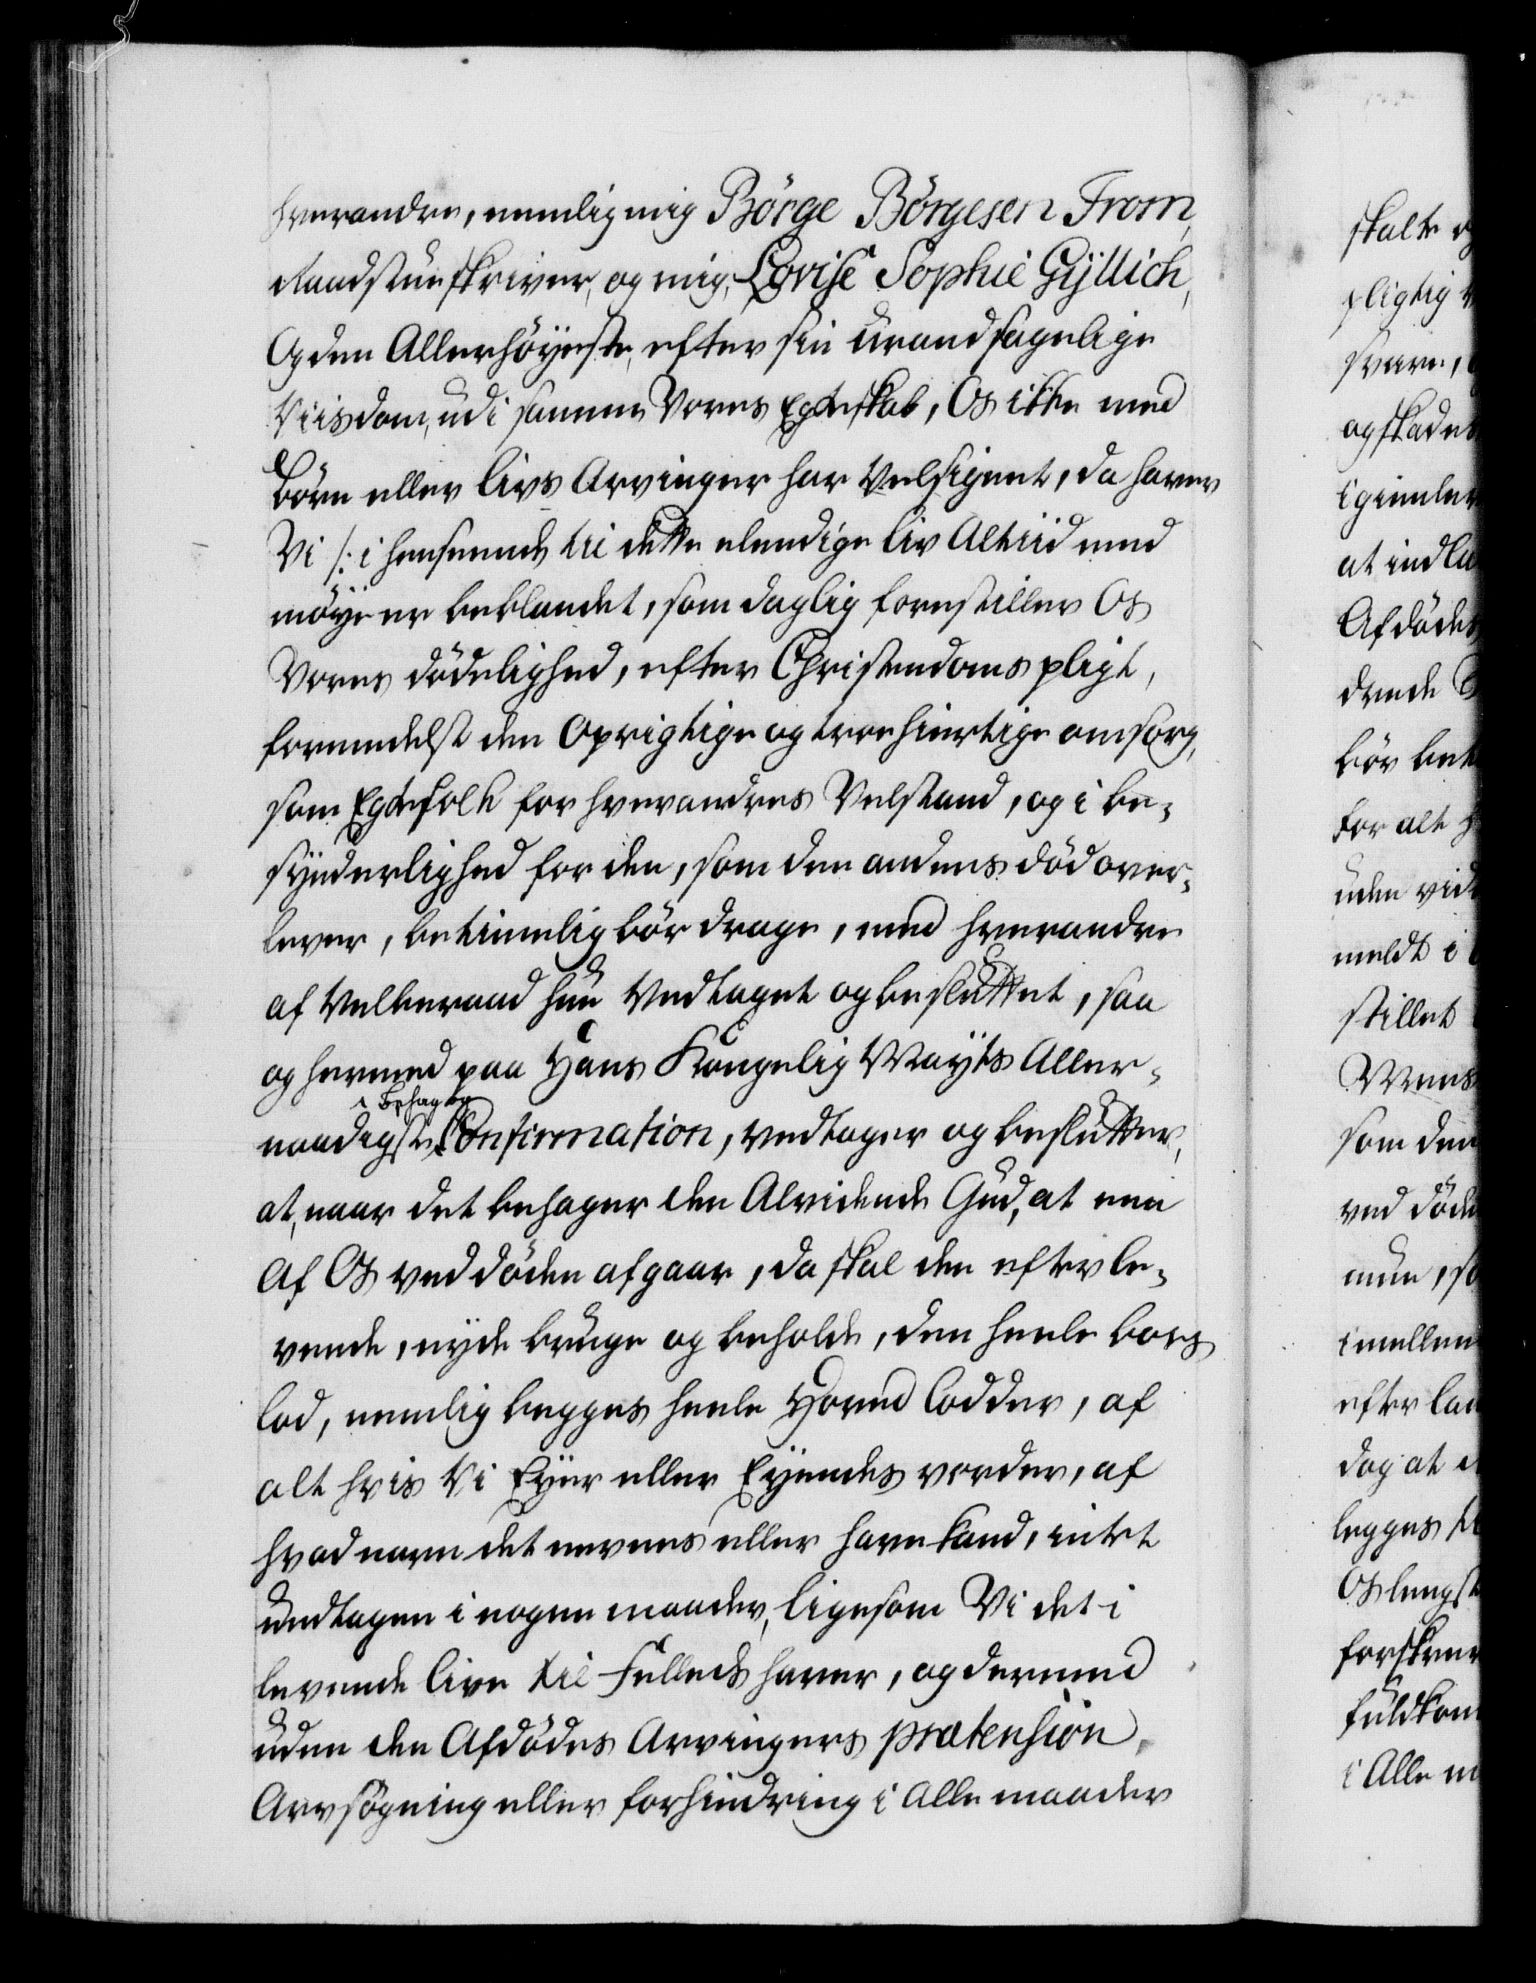 hverandre, nemlig mig Börge Börgesen From,
Raadstueskriver, og mig, Lovise Sophie Gÿllich,
Og den Allerhöyeste, efter sin urandsagelige
Viisdom, udi samme Vores Egteskab, Os ikke med
Börn eller livs Arvinger har Velsignet, da haver
Vi /: i henseende til dette elendige liv Altiid med
möye er beblandet, som daglig forestiller Os
Vores dödelighed, efter Christendoms pligt,
formedelst den Oprigtige og troehiertige omsorg,
som Egtefolk for hverandres Velstand, og i be-
synderlighed for den, som den andens död over-
lever, betimelig bör drage, med hverandre
af Velberaad hue Vedtaget og besluttet, saa
og hermed paa Hans Kongelig Mayts Aller-
naadigste Behag og Confirmation, vedtager og beslutter,
at, naar det behager den Alvidende Gud, at een
af Os ved döden afgaar, da skal den efterle-
vende, nyde bruge og beholde, den heele boes
lod, nemlig begges heele Hoved lodder, af
alt hvis Vi Eyer eller Eyendes vorder, af
hvad navn det nevnes eller have kand, intet
undtagen i nogen maader, ligesom Vi det i
levende live til Felleds haver, og dermed
uden den Afdödes Arvingers prætension,
Arvsögning eller forhindring i Alle maader
skalte og
pligtig
svare,
og skades
igiennem
at indla
Afdödes
drende
bör bet
for alt
uden vid
meldt i
stillet
Mens
som den
ved döde
mun, so
imellem
efter lan
dog at
legges
Os lengst
forskrev
fuldkom
i Alle m